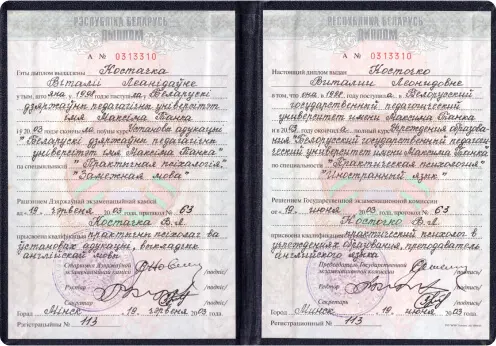 РЭСПУБЛІКА БЕЛАРУСЬ
ДЫПЛОМ
А № 0313310
Гэты дыплом выдадзены Костачка
Віталіі Леанідаўне
у тым, што яна ў 1998 годзе паступіла ў Беларускі
дзяржаўны педагагічны універсітэт
імя Максіма Танка
і ў 2003 годзе скончыла поўны курс Установа адукацыі
"Беларускі дзяржаўны педагагічны
універсітэт імя Максіма Танка"
па спецыяльнасці "Практычная псіхалогія"
"Замежная мова"
Рашэннем Дзяржаўнай экзаменацыйнай камісіі
ад «19» чэрвеня 2003 года, пратакол № 63
Костачка В.Л.
прысвоена кваліфікацыя практычны псіхолаг ва
установах адукацыі, выкладчык
англійскай мовы
Старшыня Дзяржаўнай
экзаменацыйнай камісіі /подпіс/
Рэктар /подпіс/
Сакратар /подпіс/
Горад Мінск, 19 чэрвеня 2003 г.
Рэгістрацыйны № 113
РЕСПУБЛИКА БЕЛАРУСЬ
ДИПЛОМ
А № 0313310
Настоящий диплом выдан Косточко
Виталии Леонидовне
в том, что она в 1998 году поступила в Белорусский
государственный педагогический
университет имени Максима Танка
и в 2003 году окончила полный курс Учреждения образования
"Белорусский государственный педагогический
университет имени Максима Танка"
по специальности "Практическая психология"
"Иностранный язык"
Решением Государственной экзаменационной комиссии
от «19» июня 2003 года, протокол № 63
Косточко В.Л.
присвоена квалификация практический психолог в
учреждениях образования, преподаватель
английского языка
Председатель Государственной
экзаменационной комиссии /подпись/
Ректор /подпись/
Секретарь /подпись/
Город Минск, 19 июня 2003 г.
Регистрационный № 113